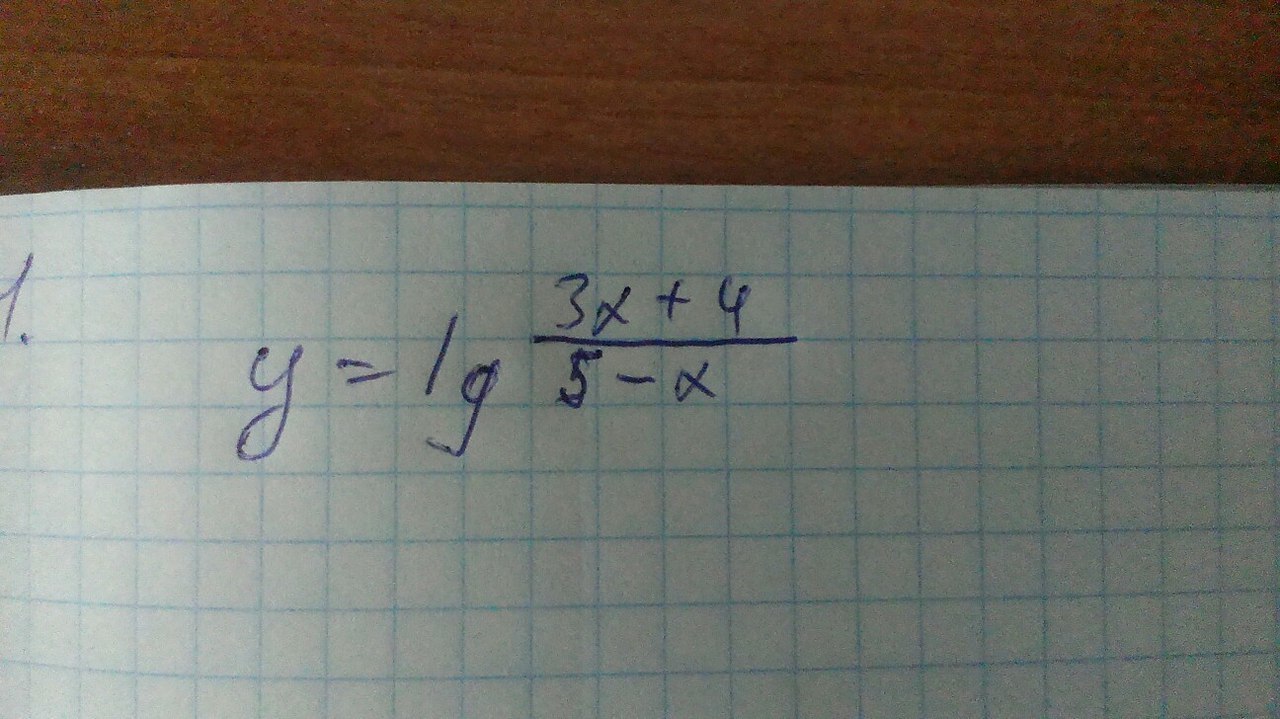 1.
y = lg (3x + 4)/(5 - x)